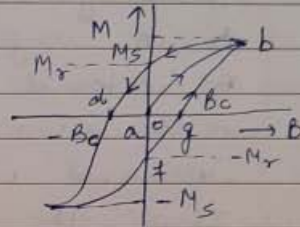 M ↑
Ms
b
Mr
d
Bc
- Bc
a
o
g
→ B
f
- Mr
- Ms